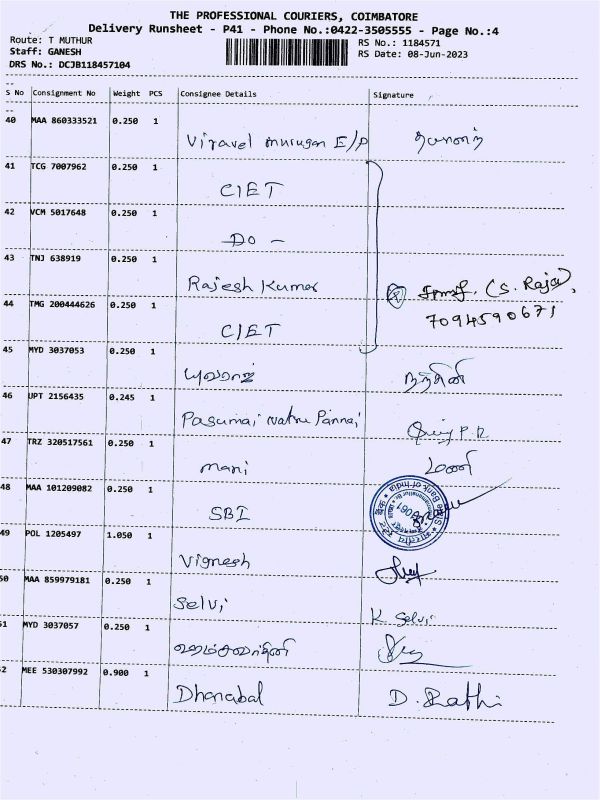 THE PROFESSIONAL COURIERS, COIMBATORE
Delivery Runsheet - P41 - Phone No.:0422-3505555 - Page No.:4
Route: T MUTHUR
RS No.: 1184571
Staff: GANESH
RS Date: 08-Jun-2023
DRS No.: DCJB118457104
S No Consignment No Weight PCS Consignee Details Signature
40 MAA 860333521 0.250 1
Viravel murugan E/P
41 TCG 7007962 0.250 1
CIET
42 VCM 5017648 0.250 1
DO -
43 TNJ 638919 0.250 1
Rajesh Kumar (S. Raja),
44 TMG 200444626 0.250 1
7094590671
CIET
45 MYD 3037053 0.250 1
யுவராஜ் நந்தினி
46 UPT 2156435 0.245 1
Pasumai Natru Pannai
47 TRZ 320517561 0.250 1
mani மணி
48 MAA 101209082 0.250 1
SBI
49 POL 1205497 1.050 1
Vignesh
50 MAA 859979181 0.250 1
Selvi K Selvi
51 MYD 3037057 0.250 1
ஹம்சவர்தினி
52 MEE 530307992 0.900 1
Dhanabal D. Rathi